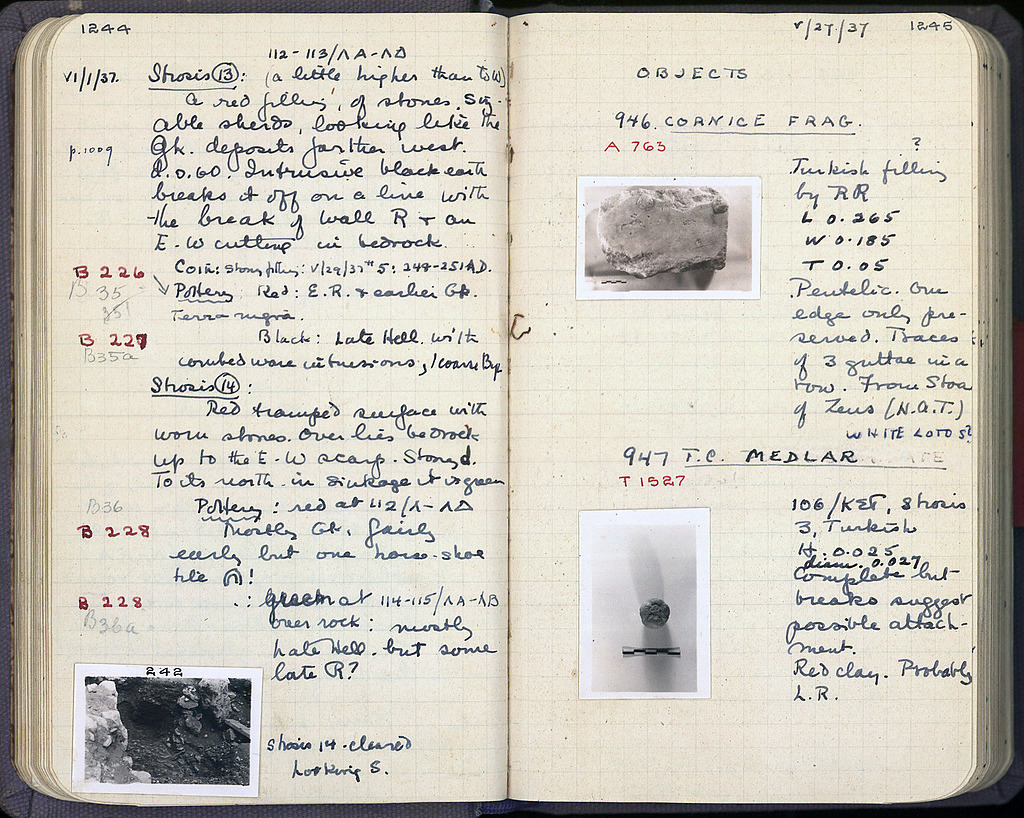 1244
112-113/ΛA-ΛΔ
VI/1/37. Strosis 13: (a little higher than to W)
A red filling, of stones, siz-
able sherds, looking like the
p.1009 Gk. deposits farther west.
d. 0.60. Intrusive black earth
breaks it off on a line with
the break of wall R + an
E-W cutting in bedrock.
B 226 Coin: stony filling: V/29/37 #5: 249-251 A.D.
B 35 Pottery Red: E.R. + earlier Gk.
Terra nigra.
B 227 Black: Late Hell. with
B35a combed ware intrusions, 1 coarse Byz
Strosis 14:
Red tramped surface with
worn stones. Over lies bedrock
up to the E-W scarp.
To its north in sinkage it is green
B36 Pottery: red at 112/Λ-ΛΔ
B 228 Mostly Gk, fairly
early but one horse-shoe
tile !
B 228 .: green at 114-115/ΛA-ΛB
B36a over rock: mostly
late Hell. but some
late R?
242
Strosis 14 cleared
Looking S.
V/27/37 1245
OBJECTS
946. CORNICE FRAG.
A 763
?
Turkish filling
by RR
L 0.265
W 0.185
T 0.05
Pentelic. One
edge only pre-
served. Traces
of 3 guttae in a
row. From Stoa
of Zeus (H.A.T.)
WHITE LOTOS?
947 T.C. MEDLAR
T 1527
106/ΚΣΤ, Strosis
3, Turkish
H. 0.025
diam. 0.027
Complete but
breaks suggest
possible attach-
ment.
Red clay. Probably
L.R.